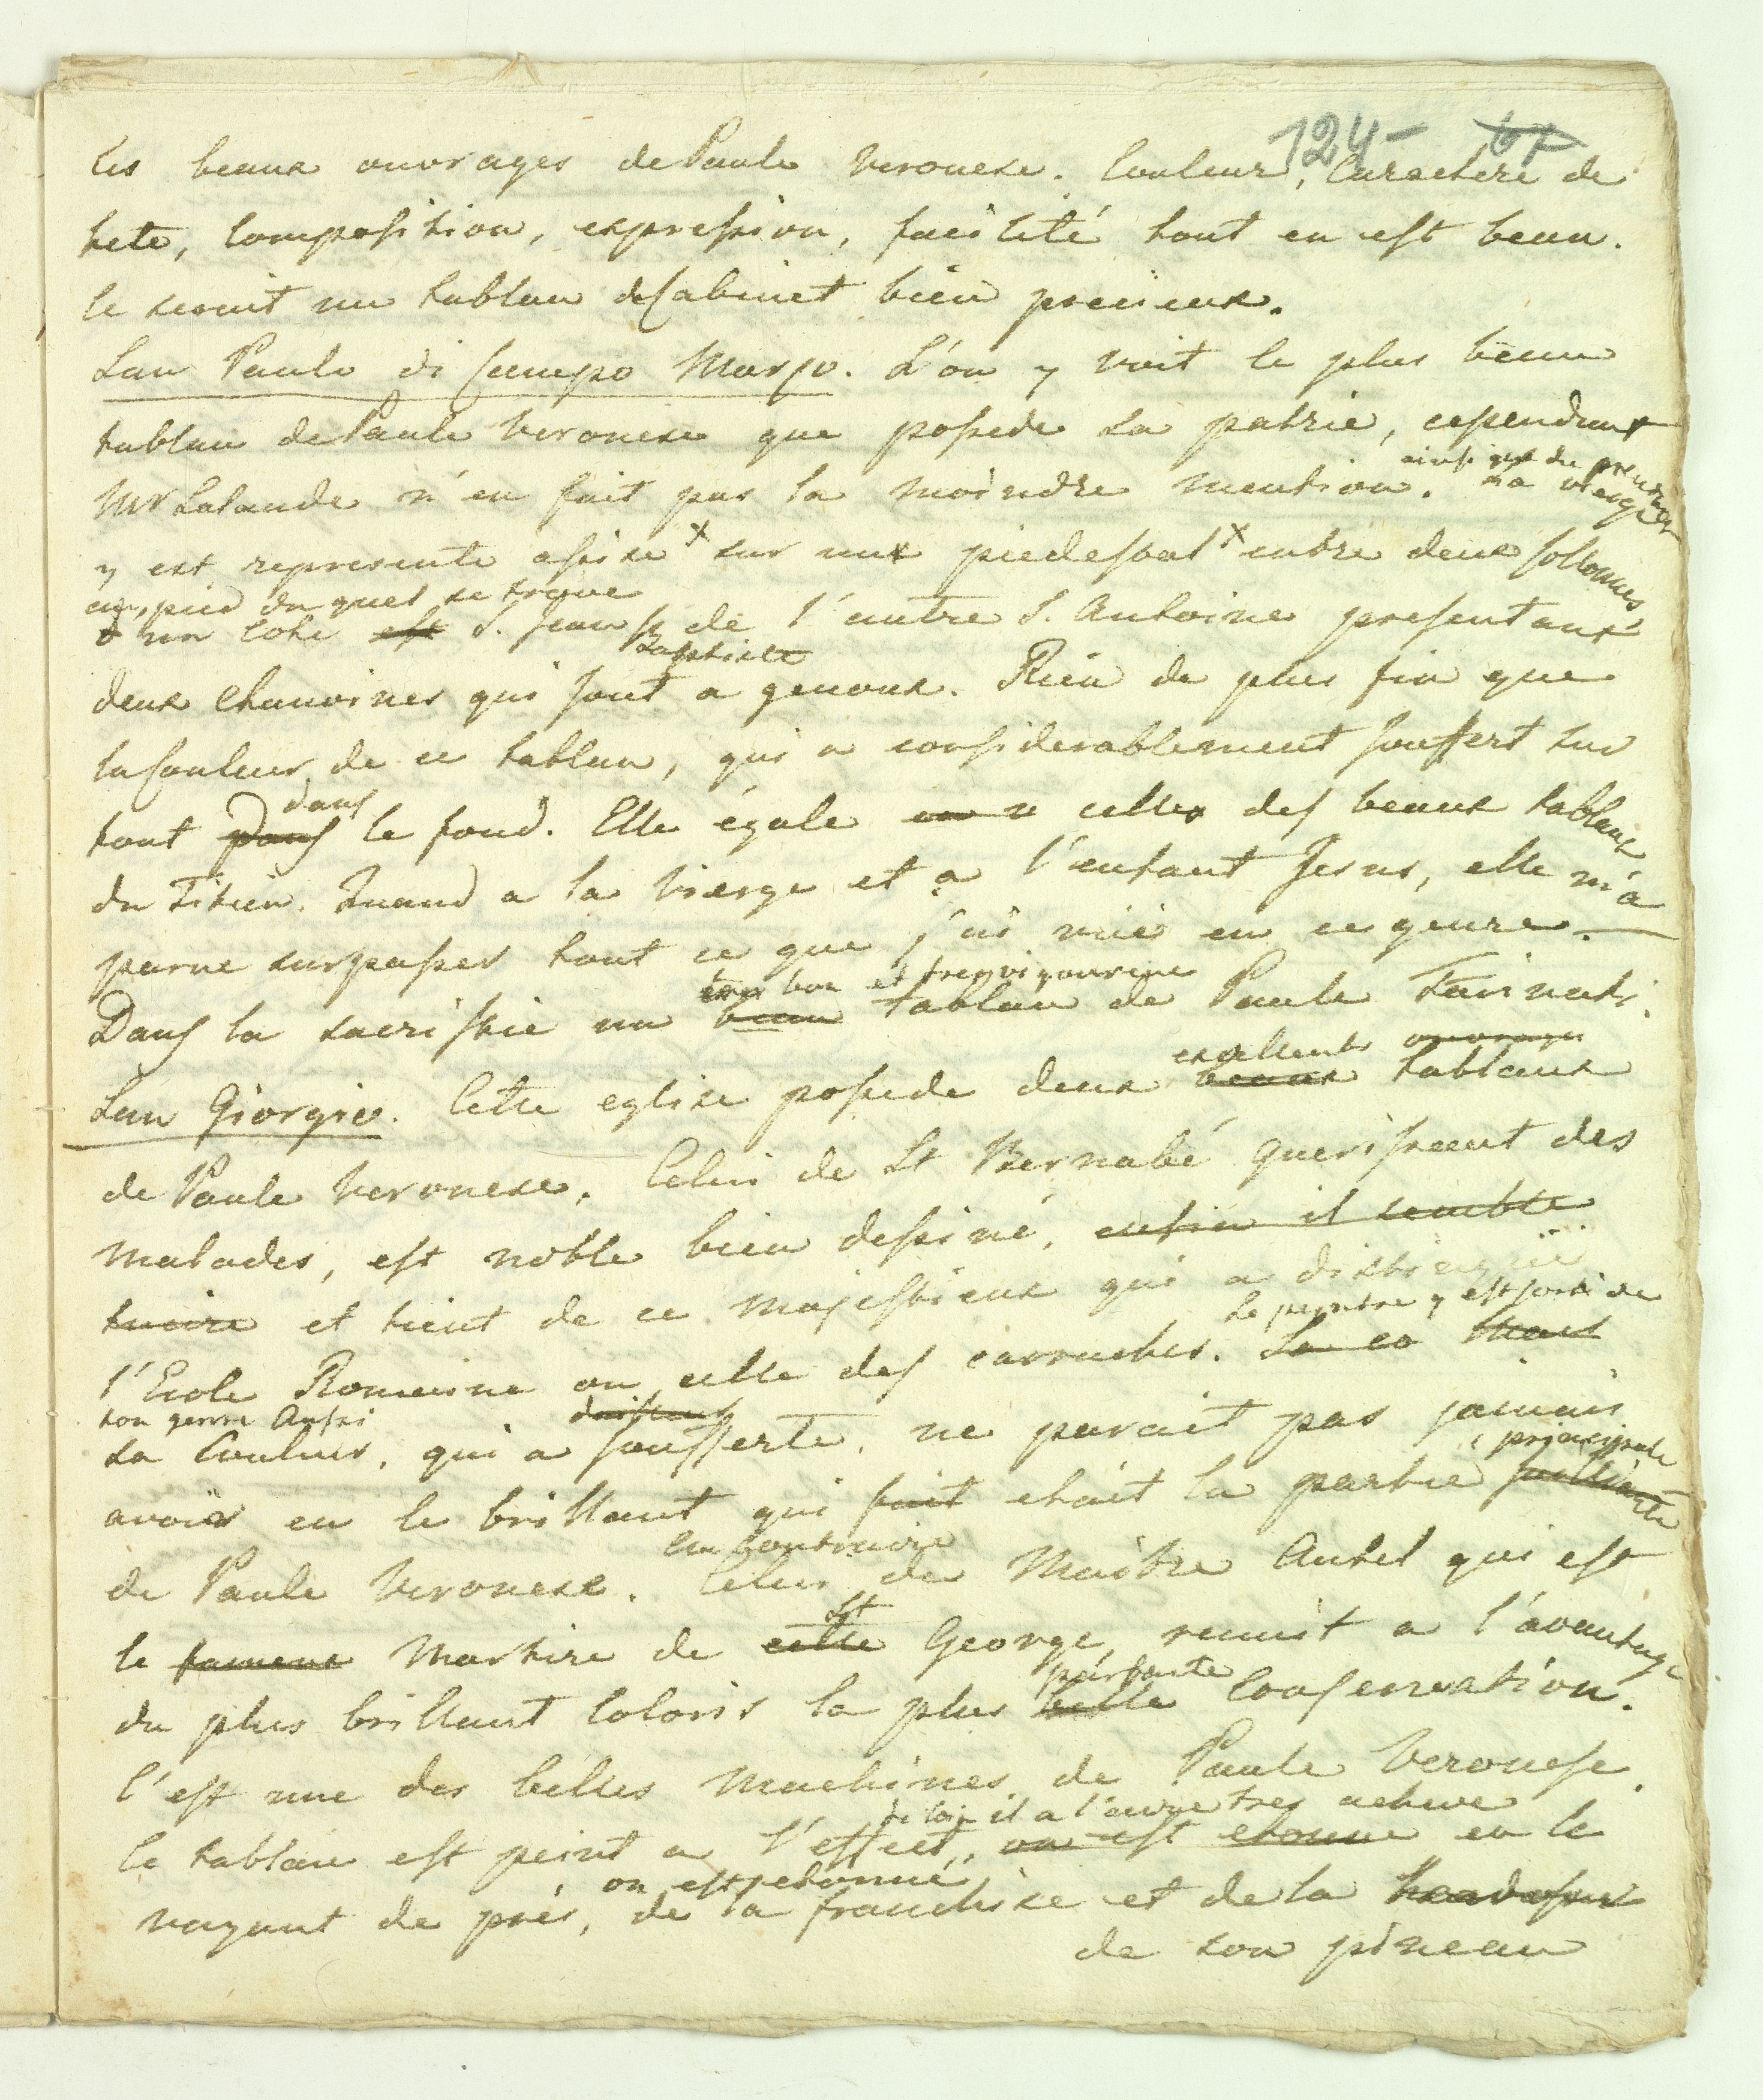 124- 67
les beaux ouvrages de Paule Veronese. Couleur, Caractere de
tete, Composition, expression, facilité tout en est beau.
Ce seroit un tablau de Cabinet bien precieux.
San Paulo di Campo Marzo. L'on y voit le plus beau
tablau de Paule Veronese que possede sa patrie, cependant
ainsi que du premier
Mr Lalande n'en fait pas la moindre mention. La vierge
y est represente assise x sur un piedestal x entre deux Collonnes
au pied du quel se trouve
d'un Coté est S. Jean de l'autre S. Antoine presentant
Baptiste
deux Chanoines qui sont a genoux. Rien de plus fin que
la Couleur de ce tablau, qui a considerablement souffert sur
dans
tout dans le fond. Elle égale en celles des beaux tablaux
du Titien. Quand a la Vierge et a l'enfant Jesus, elle m'a
parue surpasser tout ce que j'ai vue en ce genre.
tres bon et tres vigoureux
Dans la sacristie un beau tablau de Paule Farinati.
excellents ouvrages
San Giorgio. Cette eglise possede deux beaux tablaux
de Paule Veronese. Celui de St Bernabé guerissent des
malades, est noble bien dessiné, enfin il semble
tuire et tient de ce majestieux qui a distingué
Le peintre y est sorti de
l'Ecole Romaine ou celle des carraches. La co Mais
son genre Aussi
sa Couleur, qui a soufferte, ne parait pas jamais
principale
avoir eu le brillant qui fait etait la partie brillante
de Paule Veronese. Celui du Maitre Autel qui est
au contraire
St
le fameux Martire de cette George, reunit a l'avantage
parfaite
du plus brillant Coloris la plus belle Conservation.
C'est une des belles Machines de Paule Veronese.
de loin il a l'air tres acheve
Ce tablau est peint a l'effect, on est etonne en le
on est etonné
voyant de près, de la franchise et de la
de son pineau